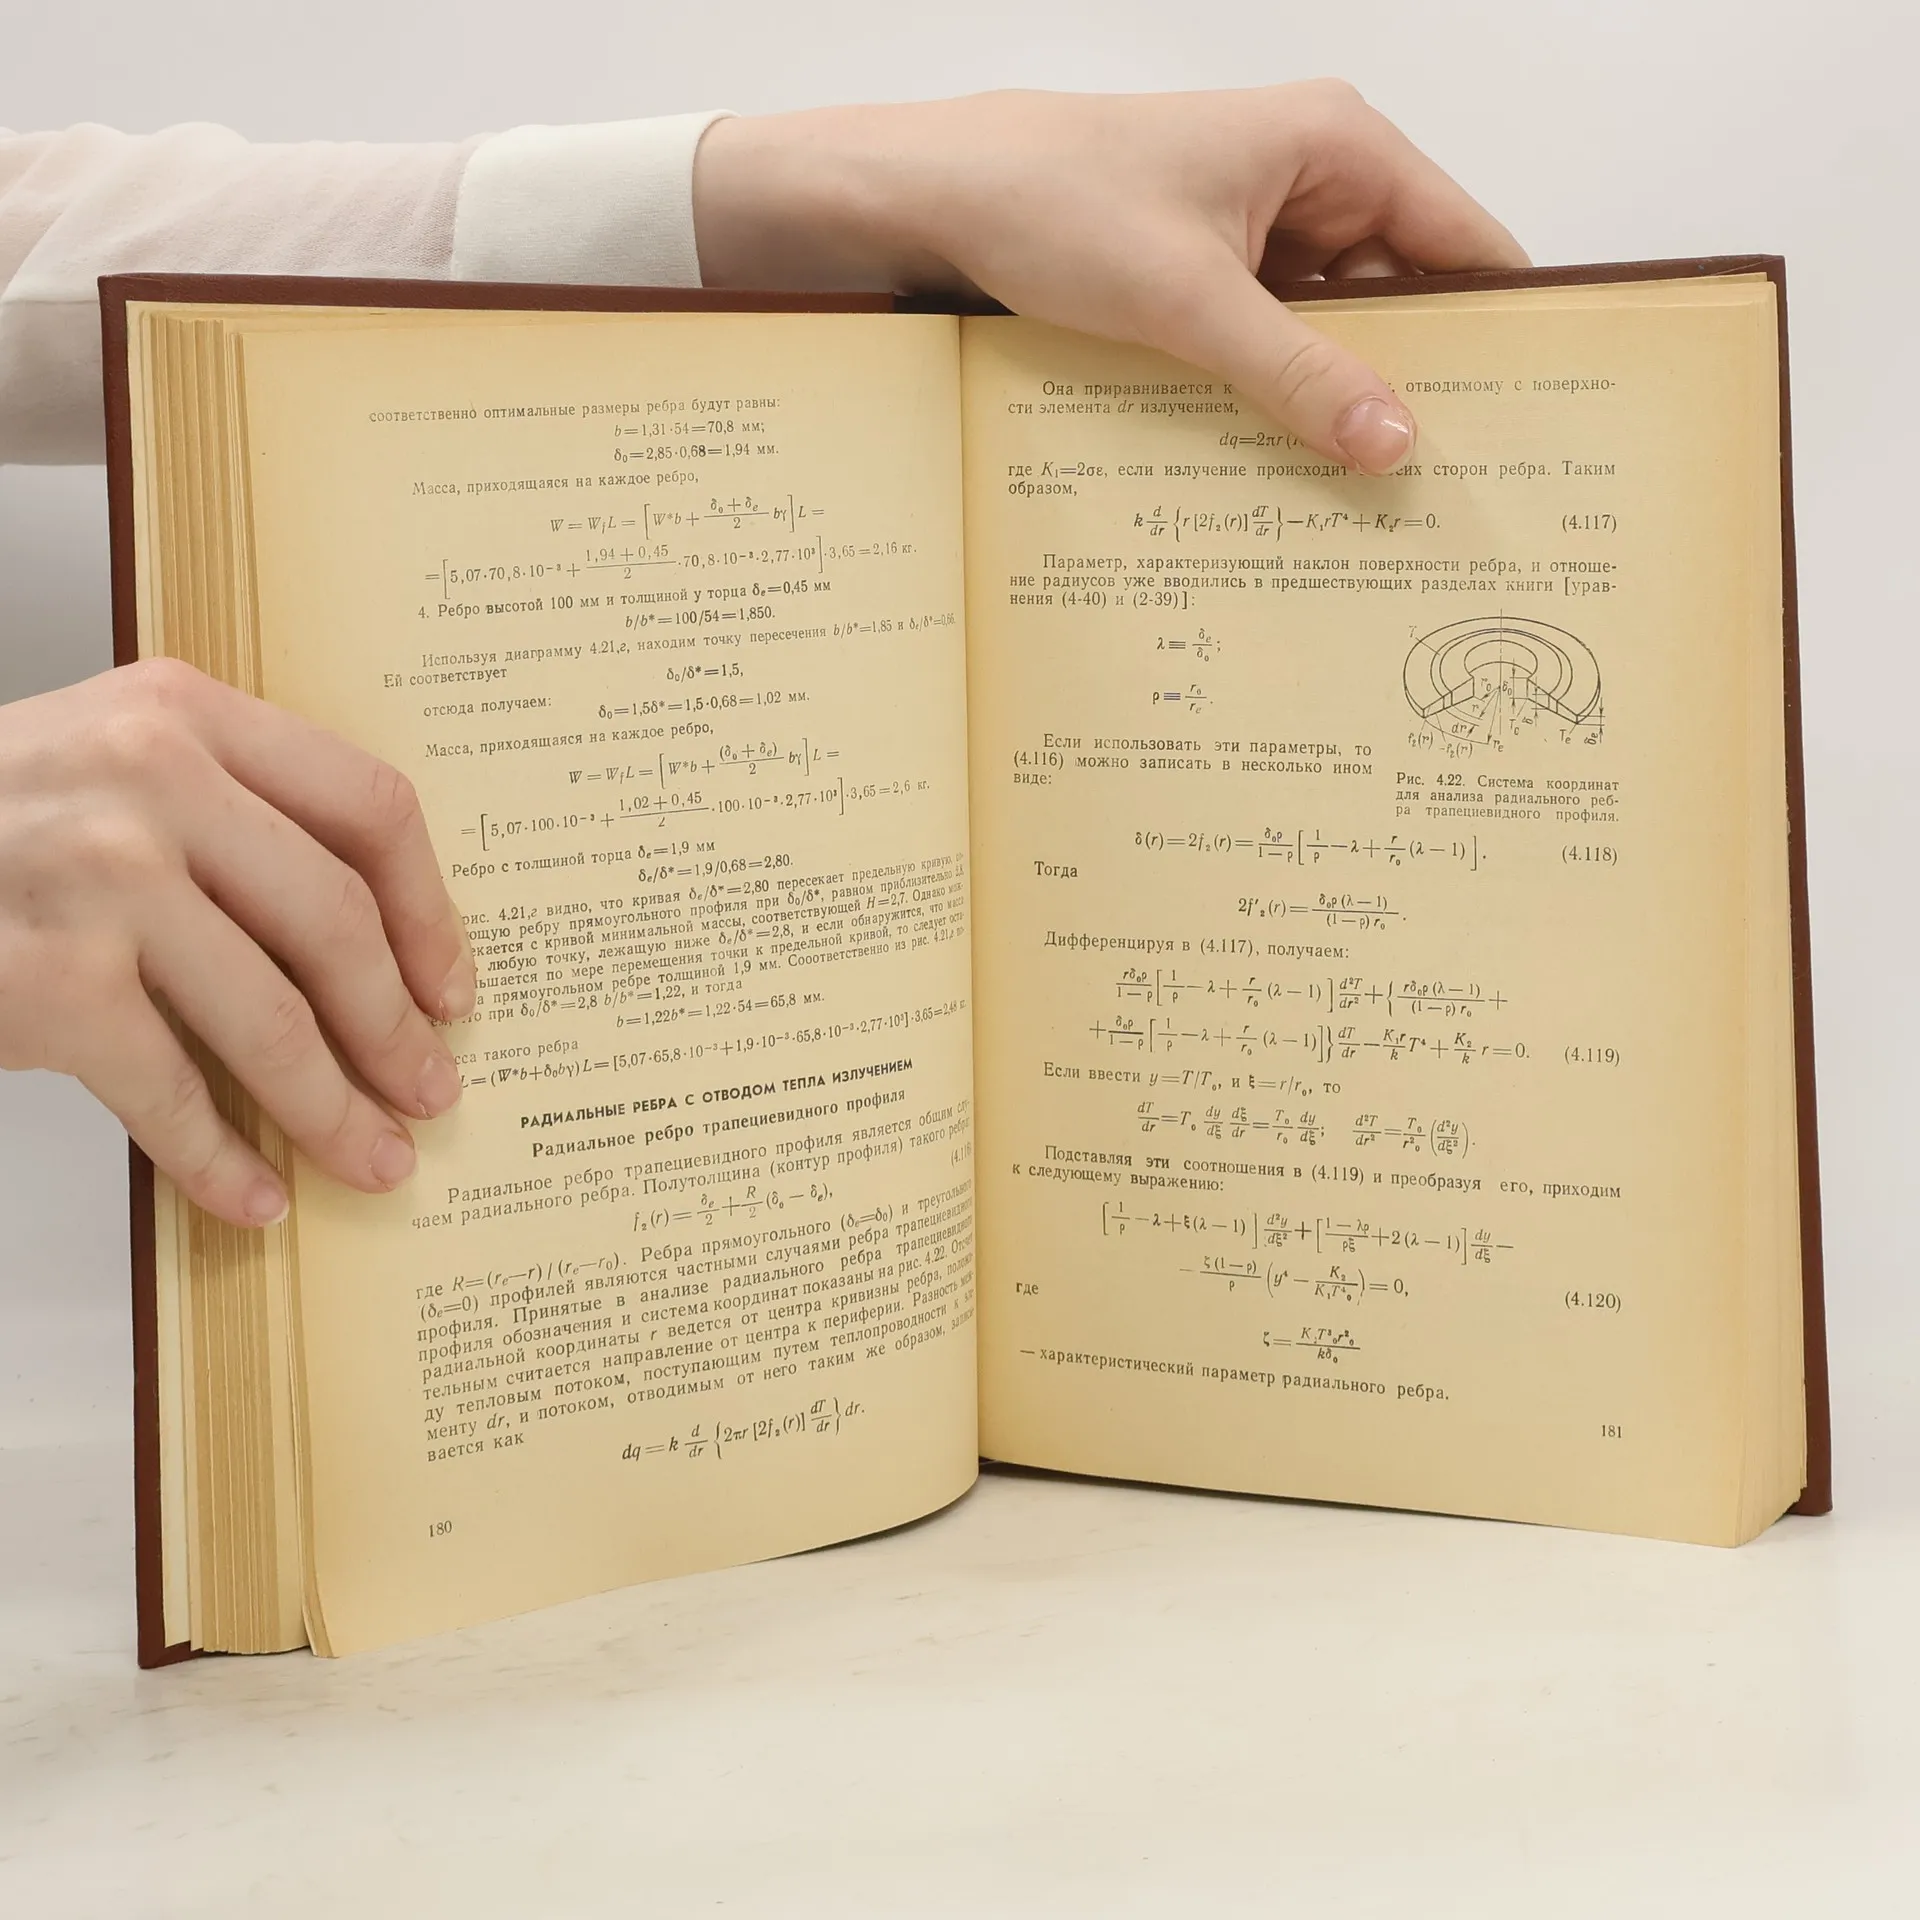 соответственно оптимальные размеры ребра будут равны:
b=1,31·54=70,8 мм;
δ₀=2,85·0,68=1,94 мм.
Масса, приходящаяся на каждое ребро,
W = W_fL = [W*b + (δ₀ + δₑ)/2 bγ] L =
= [5,07·70,8·10⁻³ + (1,94 + 0,45)/2 ·70,8·10⁻³·2,77·10³]·3,65 = 2,16 кг.
4. Ребро высотой 100 мм и толщиной у торца δₑ=0,45 мм
b/b*=100/54=1,850.
Используя диаграмму 4.21,г, находим точку пересечения b/b*=1,85 и δₑ/δ*=0,66.
Ей соответствует
δ₀/δ*=1,5,
отсюда получаем:
δ₀=1,5δ*=1,5·0,68=1,02 мм.
Масса, приходящаяся на каждое ребро,
W = W_fL = [W*b + (δ₀ + δₑ)/2 bγ] L =
= [5,07·100·10⁻³ + (1,02 + 0,45)/2 ·100·10⁻³·2,77·10³]·3,65 = 2,6 кг.
Ребро с толщиной торца δₑ=1,9 мм
δₑ/δ*=1,9/0,68=2,80.
рис. 4.21,г видно, что кривая δₑ/δ*=2,80 пересекает предельную кривую,
ребру прямоугольного профиля при δ₀/δ*, равном приблизительно 2,8.
с кривой минимальной массы, соответствующей H=2,7. Однако
любую точку, лежащую ниже δₑ/δ*=2,8, и если обнаружится, что масса
по мере перемещения точки к предельной кривой, то следует
прямоугольном ребре толщиной 1,9 мм. Сооответственно из рис. 4.21,г
при δ₀/δ*=2,8 b/b*=1,22, и тогда
b=1,22b*=1,22·54=65,8 мм.
такого ребра
L=(W*b+δ₀bγ)L=[5,07·65,8·10⁻³+1,9·10⁻³·65,8·10⁻³·2,77·10³]·3,65=2,48 кг.
РАДИАЛЬНЫЕ РЕБРА С ОТВОДОМ ТЕПЛА ИЗЛУЧЕНИЕМ
Радиальное ребро трапециевидного профиля
Радиальное ребро трапециевидного профиля является общим слу-
чаем радиального ребра. Полутолщина (контур профиля) такого ребра
f₂(r) = δₑ/2 + R/2 (δ₀ − δₑ), (4.116)
где R=(rₑ—r)/(rₑ—r₀). Ребра прямоугольного (δₑ=δ₀) и треугольного
(δₑ=0) профилей являются частными случаями ребра трапециевидного
профиля. Принятые в анализе радиального ребра трапециевидного
профиля обозначения и система координат показаны на рис. 4.22. Отсчет
радиальной координаты r ведется от центра кривизны ребра, положи-
тельным считается направление от центра к периферии. Разность меж-
ду тепловым потоком, поступающим путем теплопроводности к эле-
менту dr, и потоком, отводимым от него таким же образом, записы-
вается как
dq = k d/dr {2πr [2f₂(r)] dT/dr} dr.
180
Она приравнивается к отводимому с поверхно-
сти элемента dr излучением,
dq=2πr
где K₁=2σε, если излучение происходит сторон ребра. Таким
образом,
k d/dr {r [2f₂(r)] dT/dr} — K₁rT⁴ + K₂r = 0. (4.117)
Параметр, характеризующий наклон поверхности ребра, и отноше-
ние радиусов уже вводились в предшествующих разделах книги [урав-
нения (4-40) и (2-39)]:
λ ≡ δₑ/δ₀;
ρ ≡ r₀/rₑ.
r₀ δ₀
r
dr T_c δ Tₑ δₑ
f₂(r) -f₂(r) rₑ
Если использовать эти параметры, то
(4.116) можно записать в несколько ином
виде:
Рис. 4.22. Система координат
для анализа радиального реб-
ра трапециевидного профиля.
δ(r)=2f₂(r)= δ₀ρ/(1—ρ) [1/ρ —λ+ r/r₀ (λ—1)]. (4.118)
Тогда
2f′₂(r)= δ₀ρ(λ—1)/((1—ρ)r₀).
Дифференцируя в (4.117), получаем:
rδ₀ρ/(1—ρ) [1/ρ —λ+ r/r₀ (λ—1)] d²T/dr² + {rδ₀ρ(λ—1)/((1—ρ)r₀) +
+ δ₀ρ/(1—ρ) [1/ρ —λ+ r/r₀ (λ—1)]} dT/dr — K₁r/k T⁴ + K₂/k r=0. (4.119)
Если ввести y=T/T₀, и ξ=r/r₀, то
dT/dr =T₀ dy/dξ dξ/dr = T₀/r₀ dy/dξ; d²T/dr² = T₀/r²₀ (d²y/dξ²).
Подставляя эти соотношения в (4.119) и преобразуя его, приходим
к следующему выражению:
[1/ρ —λ+ξ(λ—1)] d²y/dξ² + [(1—λρ)/ρξ +2(λ—1)] dy/dξ —
— ζ(1—ρ)/ρ (y⁴ — K₂/K₁T⁴₀) = 0, (4.120)
где
ζ= K₁T³₀r²₀/kδ₀
— характеристический параметр радиального ребра.
181